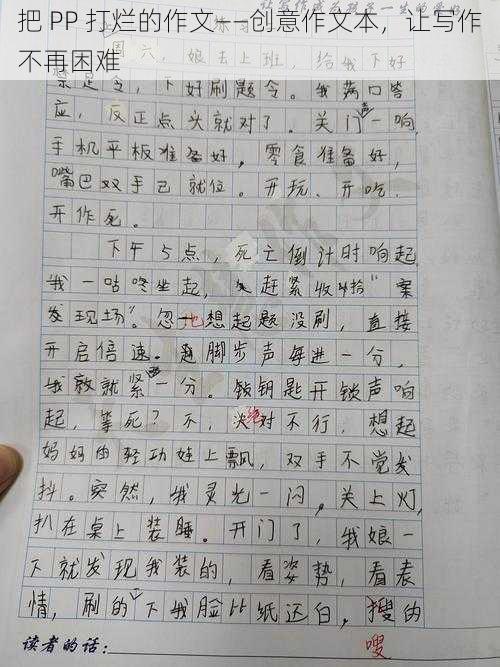 把 PP 打烂的作文——创意作文本，让写作
不再困难
周六，娘去上班，给我下好
禁足令。下好刷题令。我满口答
应，反正点头就对了。关门声一响，
手机平板准备好，零食准备好，
嘴巴双手已就位。开玩、开吃、
开作死。
下午5点，死亡倒计时响起，
我一咕咚坐起，赶紧收拾"案
发现场"。忽地想起题没刷，直接
开启倍速。脚步声每进一分，
我就紧一分。钥匙开锁声响
起，等死？不，绝对不行，想起
妈妈的轻功娃上飘，双手不觉发
抖。突然，我灵光一闪。关上灯，
扒在桌上装睡。开门了，我娘一
下就发现我装的，看姿势，看表
情，刷的一下我脸比纸还白，搜的
嗖
读者的话：